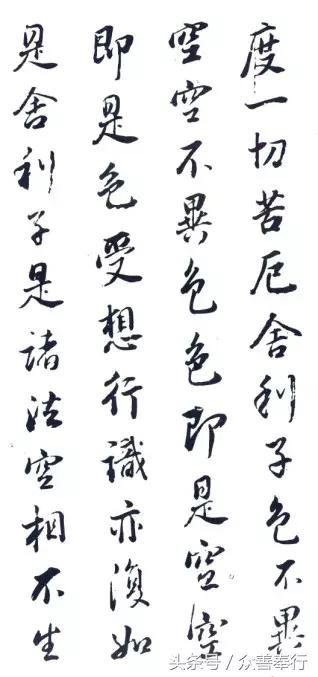 度一切苦厄舍利子色不異
空空不異色色即是空空
即是色受想行識亦復如
是舍利子是諸法空相不生
头条号/众善奉行